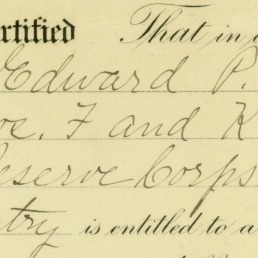 rtified That in a
Edward P.
oe. F and K
eserve Corps
try is entitled to a